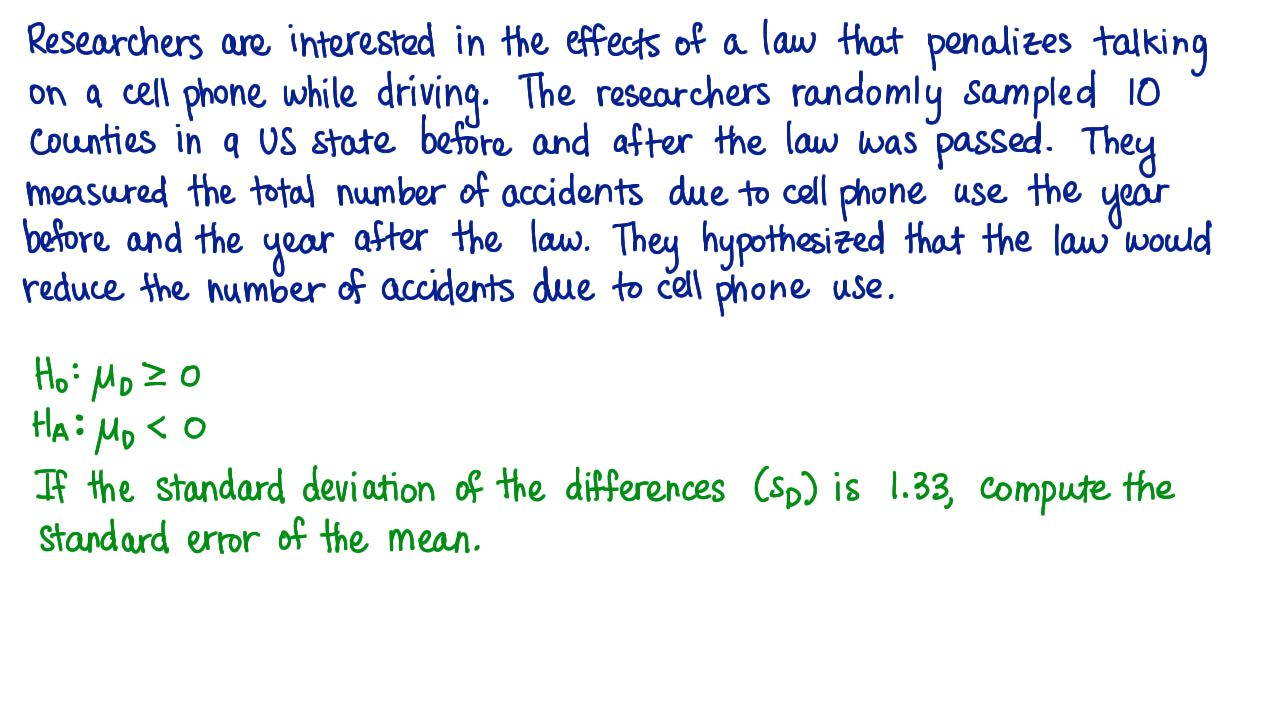 Researchers are interested in the effects of a law that penalizes talking
on a cell phone while driving. The researchers randomly sampled 10
counties in a US state before and after the law was passed. They
measured the total number of accidents due to cell phone use the year
before and the year after the law. They hypothesized that the law would
reduce the number of accidents due to cell phone use.
H₀: μ_D ≥ 0
H_A: μ_D < 0
If the standard deviation of the differences (s_D) is 1.33, compute the
standard error of the mean.